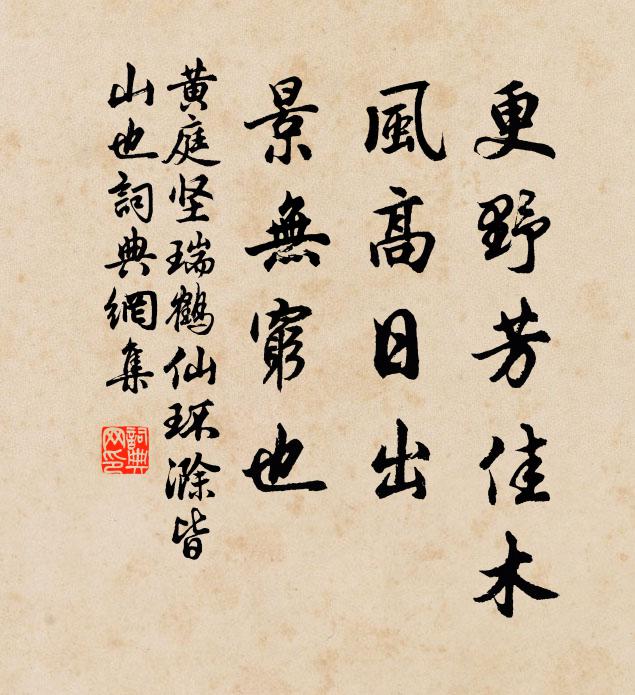 更野芳佳木
風高日出
景無窮也
黄庭坚瑞鹤仙环滁皆
山也詞典網集
詞典网印